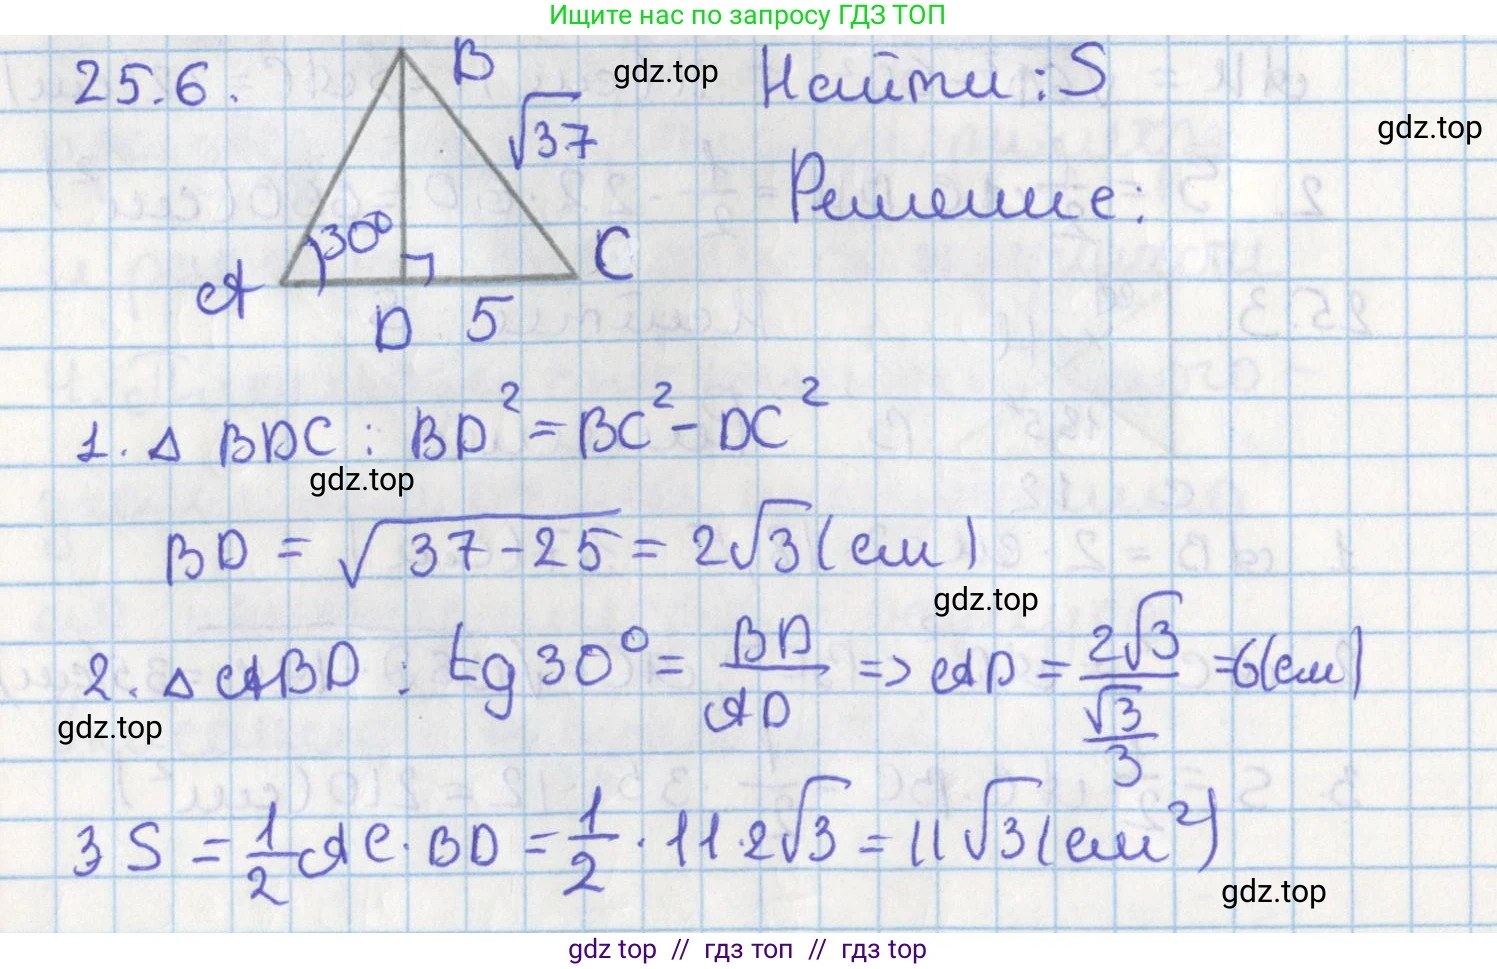 Ищите нас по запросу ГДЗ ТОП
25.6.
B
gdz.top
Найти: S
√37
gdz.top
Решение:
30°
C
A
D 5
1. △ BDC : BD² = BC² - DC²
gdz.top
BD = √37-25 = 2√3 (см)
gdz.top
2. △ ABD : tg 30° = BD/AD => AD = 2√3/(√3/3) = 6(см)
gdz.top
3 S = 1/2 AC · BD = 1/2 · 11 · 2√3 = 11√3 (см²)
gdz.top
gdz top // гдз топ // гдз top